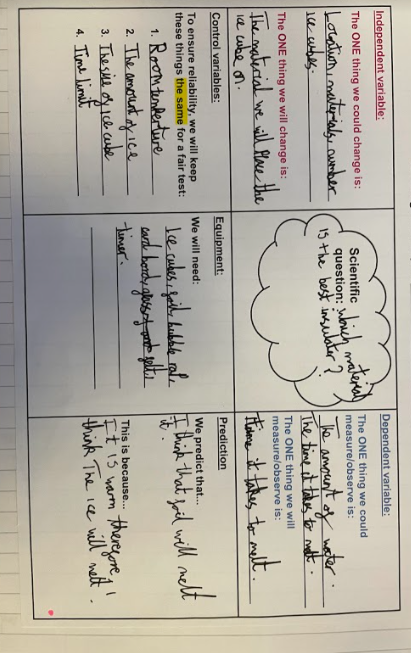 Independent variable:
The ONE thing we could change is:
Location, materials, number
ice cubes.
The ONE thing we will change is:
The material we will place the
ice cube on.
Scientific
question: Which material
is the best insulator?
Dependent variable:
The ONE thing we could
measure/observe is:
The amount of water.
The time it takes to melt.
The ONE thing we will
measure/observe is:
time it takes to melt.
Control variables:
To ensure reliability, we will keep
these things the same for a fair test:
1. Room
2. The amount of ice
3. The size of ice cube
4. Time limit
Equipment:
We will need:
Ice cubes, foil, bubble
card board,
timer.
Prediction
We predict that...
I think that foil will melt
it.
This is because...
It is warm therefore I
think The ice will melt.